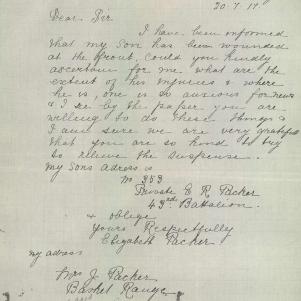 20.7.17
Dear Sir
I have been informed
that my Son has been wounded
at the front, could you kindly
ascertain for me what are the
extent of his injuries & where
he is, one is so anxious for news
& I see by the paper you are
willing to do these things
I am sure we are very grateful
that you are so kind to try
to relieve the suspense.
My Sons adress is
No 353
Private E R Packer
43rd Battalion.
& oblige
Yours Respectfully
Elizabeth Packer
my adress
Mrs J. Packer
Basket Range